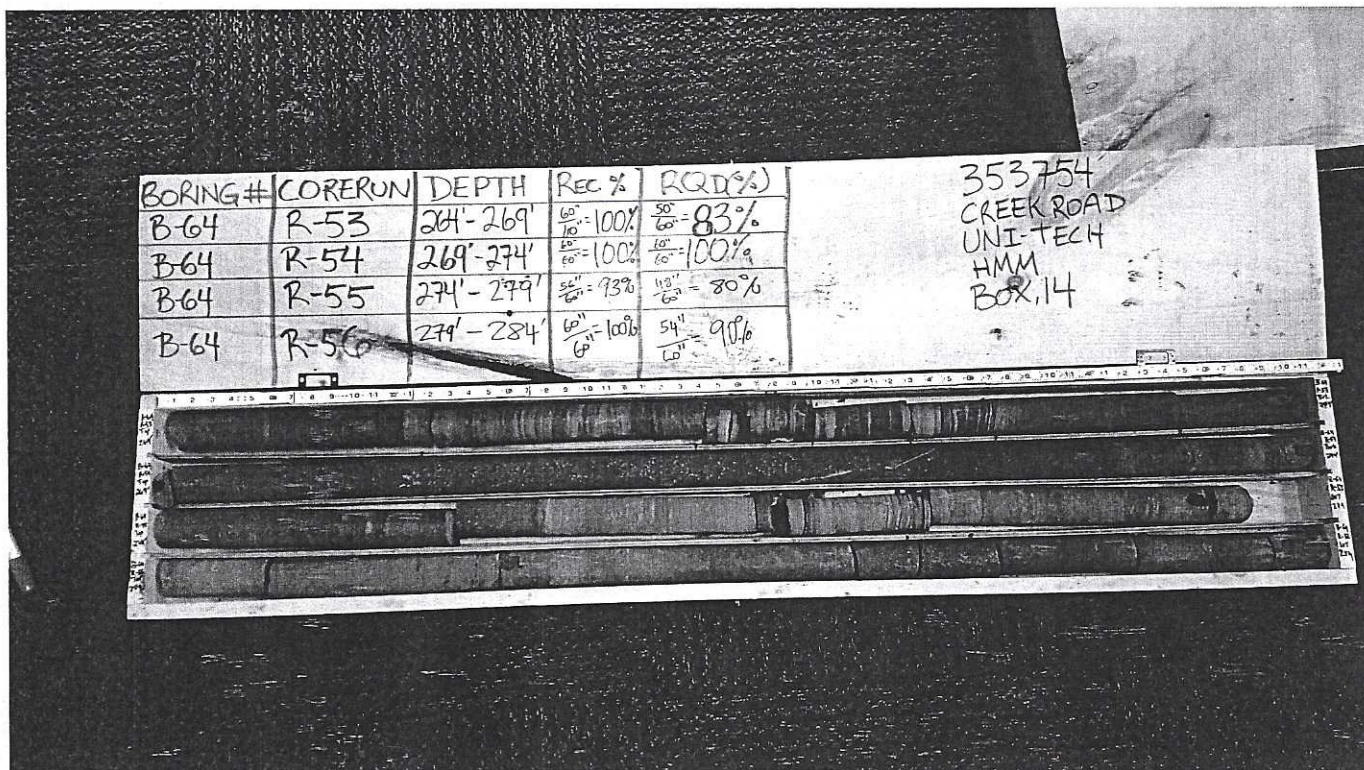 BORING # CORERUN DEPTH REC % RQD(%)
B-64 R-53 264'-269' 60"/60"=100% 50"/60"=83%
B-64 R-54 269'-274' 60"/60"=100% 60"/60"=100%
B-64 R-55 274'-279' 56"/60"=93% 48"/60"=80%
B-64 R-56 279'-284' 60"/60"=100% 54"/60"=90%
353754
CREEK ROAD
UNI-TECH
HMM
BOX, 14